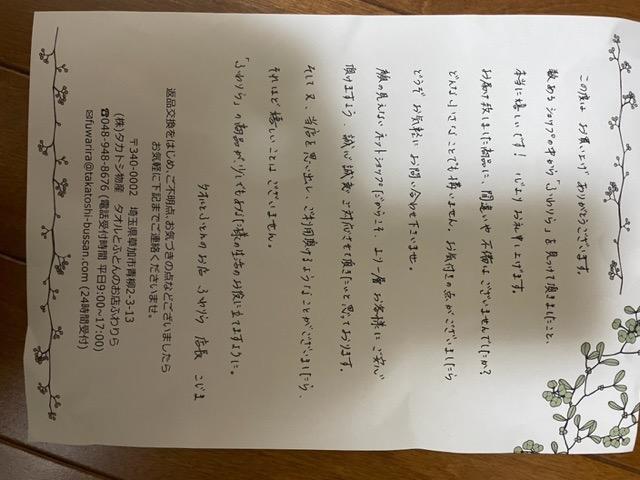 この度は お買い上げ ありがとうございます。
数あるショップの中から「ふわりら」を見つけて頂きましたこと、
本当に嬉しいです! 心よりお礼申し上げます。
お届け致しました商品に、間違いや不備はございませんでしたか?
どんな小さなことでも構いません。お気付きの点がございましたら
どうぞ お気軽に お問い合せ下さいませ。
顔の見えないネットショップだからこそ、より一層 お客様に ご安心
頂けますよう、誠心誠意 ご対応させて頂きたいと思っております。
そして又、当店を思い出し、ご利用頂けるようなことがございましたら、
それほど嬉しいことはございません。
「ふわりら」の商品が少しでもあなた様の生活のお役に立てますように。
タオルとふとんのお店 ふわりら 店長 こじま
返品交換をはじめ、ご不明点、お気づきの点などございましたら
お気軽に下記までご連絡くださいませ。
〒340-0002 埼玉県草加市青柳2-3-13
(株)タカトシ物産 タオルとふとんのお店ふわりら
☎048-948-8676 (電話受付時間 平日9:00~17:00)
✉fuwarira@takatoshi-bussan.com (24時間受付)